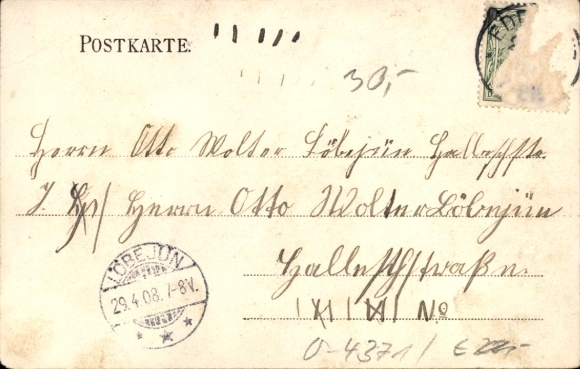 POSTKARTE.
30,-
Herrn Otto Wolter Löbejün Halleschstr.
Herrn Otto Wolter Löbejün
Halleschstraße.
LÖBEJÜN
29.4.08. 7-8V.
No
0-4371/